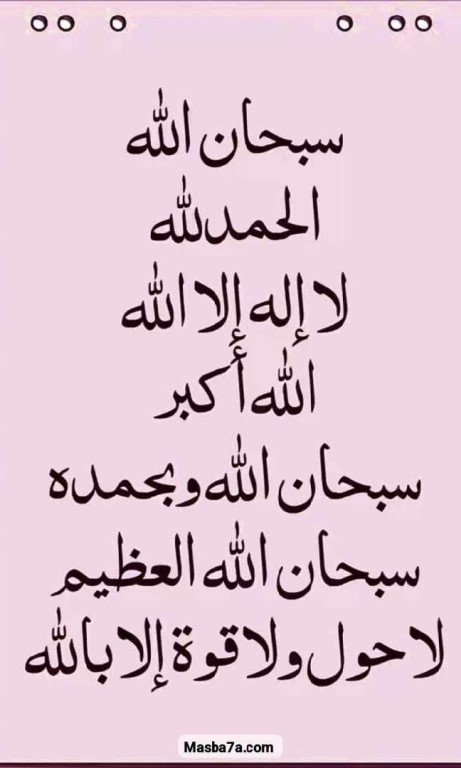 سبحان الله
الحمدلله
لا إله إلا الله
الله أكبر
سبحان الله وبحمده
سبحان الله العظيم
لا حول ولا قوة إلا بالله
Masba7a.com